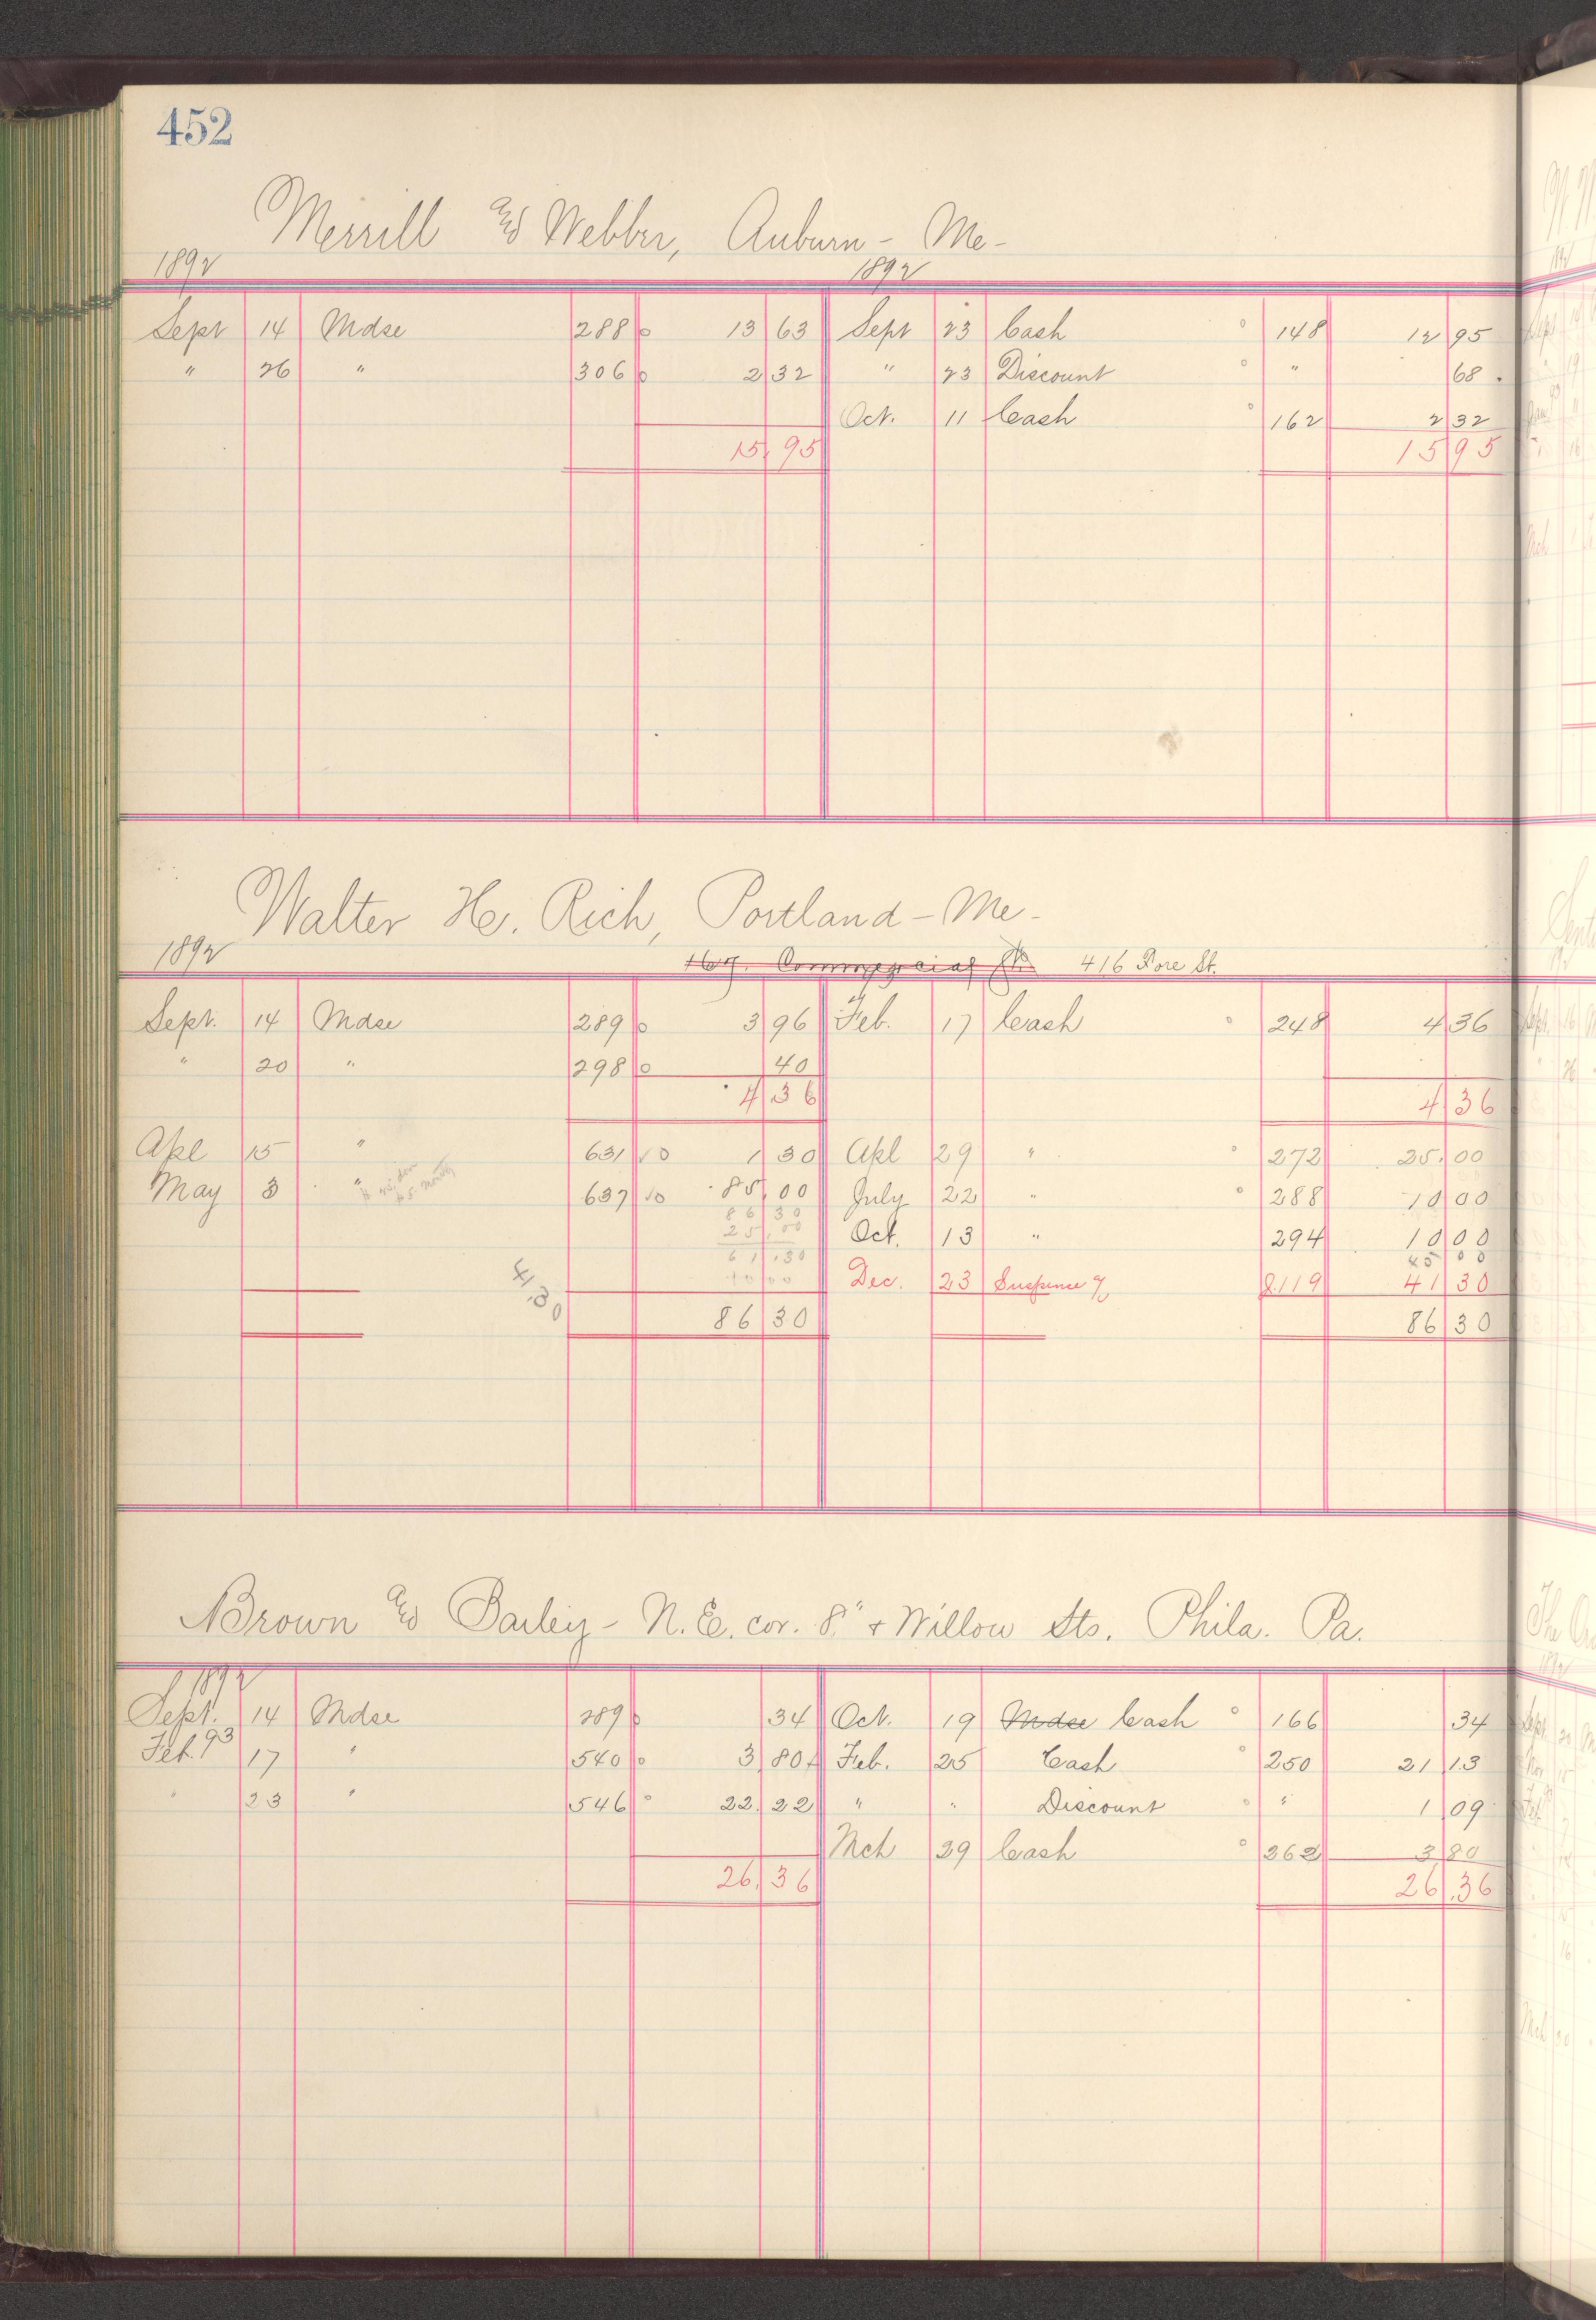 452
Merrill and Webber, Auburn - Me -
1892 1892
Sept 14 Mdse 288 13 63 Sept 23 Cash 148 12 95
" 26 " 306 2 32 " 23 Discount " 68
Oct. 11 Cash 162 2 32
15 95 15 95
Walter H. Rich, Portland - Me -
1892 Commercial St. 416 Fore St.
Sept. 14 Mdse 289 3 96 Feb. 17 Cash 248 4 36
" 20 " 298 40
4 36 4 36
Apl 15 " 631 10 1 30 Apl 29 " 272 25.00
May 3 " 637 10 85.00 July 22 " 288 10 00
86 30
25.00 Oct. 13 " 294 10 00
61.30 45 00
41.30 10 00 Dec. 23 Suspense % 119 41 30
86 30 86 30
Brown and Bailey - N. E. cor. 8" + Willow Sts. Phila. Pa.
1892
Sept. 14 Mdse 289 34 Oct. 19 Mdse Cash 166 34
Feb. 93 17 " 540 3 80 Feb. 25 Cash 250 21 13
" 23 " 546 22.22 " " Discount " 1 09
Mch 29 Cash 262 3 80
26.36 26.36